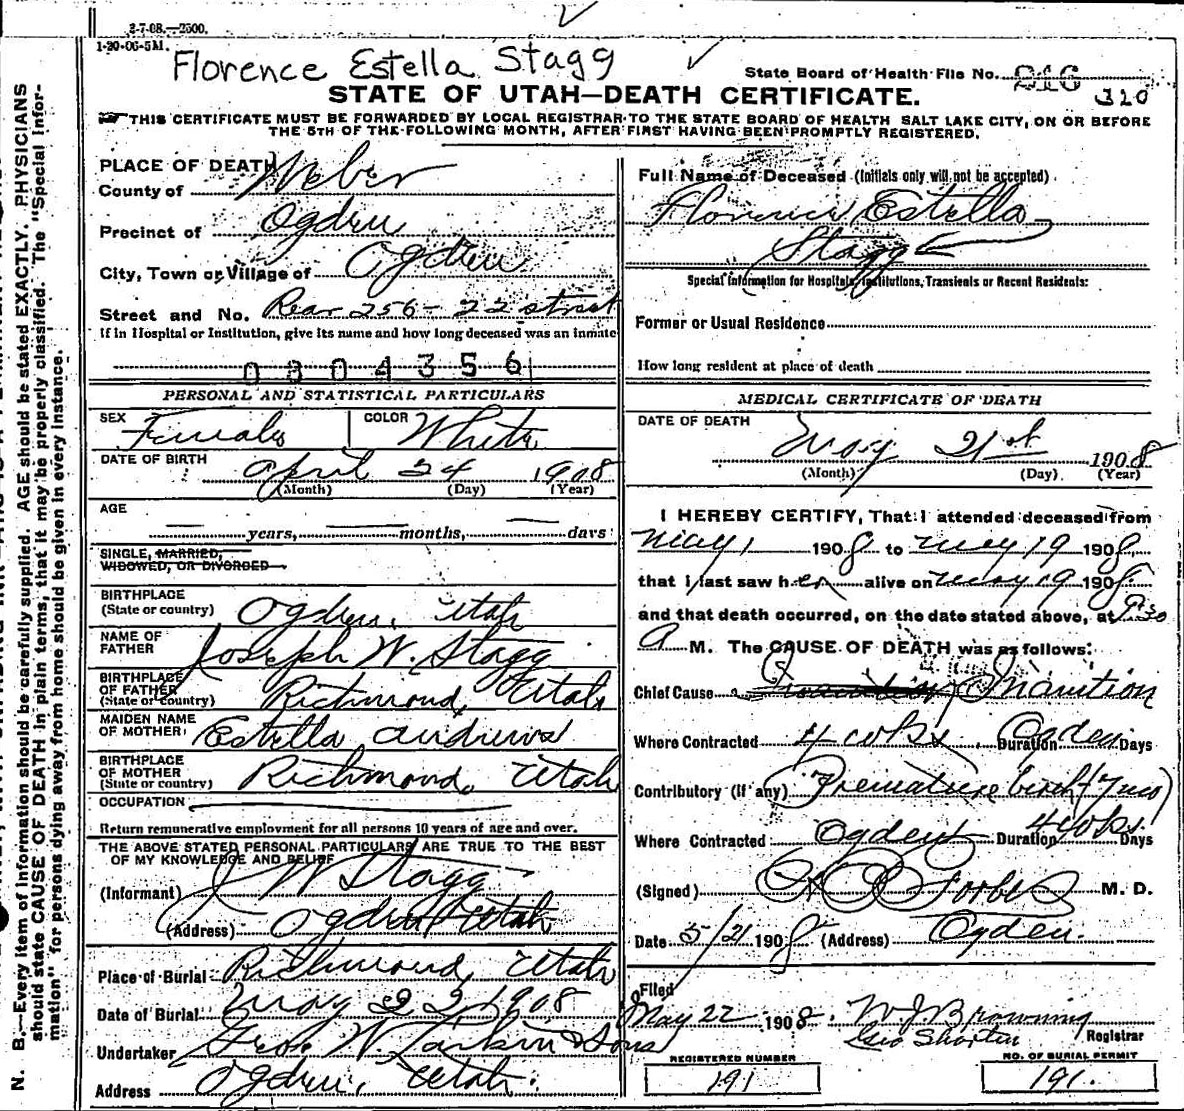 2-7-08.—2500.
1-20-06-5M.
Florence Estella Stagg
State Board of Health File No. 216
310
STATE OF UTAH—DEATH CERTIFICATE.
THIS CERTIFICATE MUST BE FORWARDED BY LOCAL REGISTRAR TO THE STATE BOARD OF HEALTH SALT LAKE CITY, ON OR BEFORE
THE 5TH OF THE FOLLOWING MONTH, AFTER FIRST HAVING BEEN PROMPTLY REGISTERED.
PLACE OF DEATH
County of Weber
Precinct of Ogden
City, Town or Village of Ogden
Street and No. Rear 256-22 street
If in Hospital or Institution, give its name and how long deceased was an inmate
0804356
PERSONAL AND STATISTICAL PARTICULARS
SEX Female COLOR White
DATE OF BIRTH April 24 1908
(Month) (Day) (Year)
AGE
years, months, days
SINGLE, MARRIED,
WIDOWED, OR DIVORCED
BIRTHPLACE
(State or country) Ogden, Utah
NAME OF
FATHER Joseph W. Stagg
BIRTHPLACE
OF FATHER
(State or country) Richmond, Utah
MAIDEN NAME
OF MOTHER Estella Andrews
BIRTHPLACE
OF MOTHER
(State or country) Richmond, Utah
OCCUPATION
Return remunerative employment for all persons 10 years of age and over.
THE ABOVE STATED PERSONAL PARTICULARS ARE TRUE TO THE BEST
OF MY KNOWLEDGE AND BELIEF
(Informant) J W Stagg
(Address) Ogden Utah
Place of Burial Richmond, Utah
Date of Burial May 22, 1908
Undertaker Geo. W. Larkin & Sons
Address Ogden, Utah.
Full Name of Deceased (Initials only will not be accepted)
Florence Estella
Stagg
Special Information for Hospitals, Institutions, Transients or Recent Residents:
Former or Usual Residence
How long resident at place of death
MEDICAL CERTIFICATE OF DEATH
DATE OF DEATH
May 21st 1908
(Month) (Day) (Year)
I HEREBY CERTIFY, That I attended deceased from
May 1 1908 to May 19 1908
that I last saw her alive on May 19 1908
and that death occurred, on the date stated above, at :30
A M. The CAUSE OF DEATH was as follows:
Chief Cause Inanition
Where Contracted 4 wks Ogden Duration Days
Contributory (if any) Premature birth (7 mo)
Where Contracted Ogden Duration 4 wks Days
(Signed) Forbes M. D.
Date 5/21 1908 (Address) Ogden.
Filed
May 22 1908 W J Browning
Geo Shorten Registrar
REGISTERED NUMBER
191
NO. OF BURIAL PERMIT
191.
N. B.—Every item of information should be carefully supplied. AGE should be stated EXACTLY. PHYSICIANS
should state CAUSE OF DEATH in plain terms, that it may be properly classified. The "Special Infor-
mation" for persons dying away from home should be given in every instance.